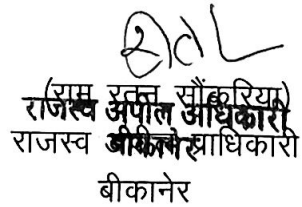 (राम रतन सौंकरिया)
राजस्व अपील अधिकारी
बीकानेर
राजस्व प्राधिकारी
बीकानेर